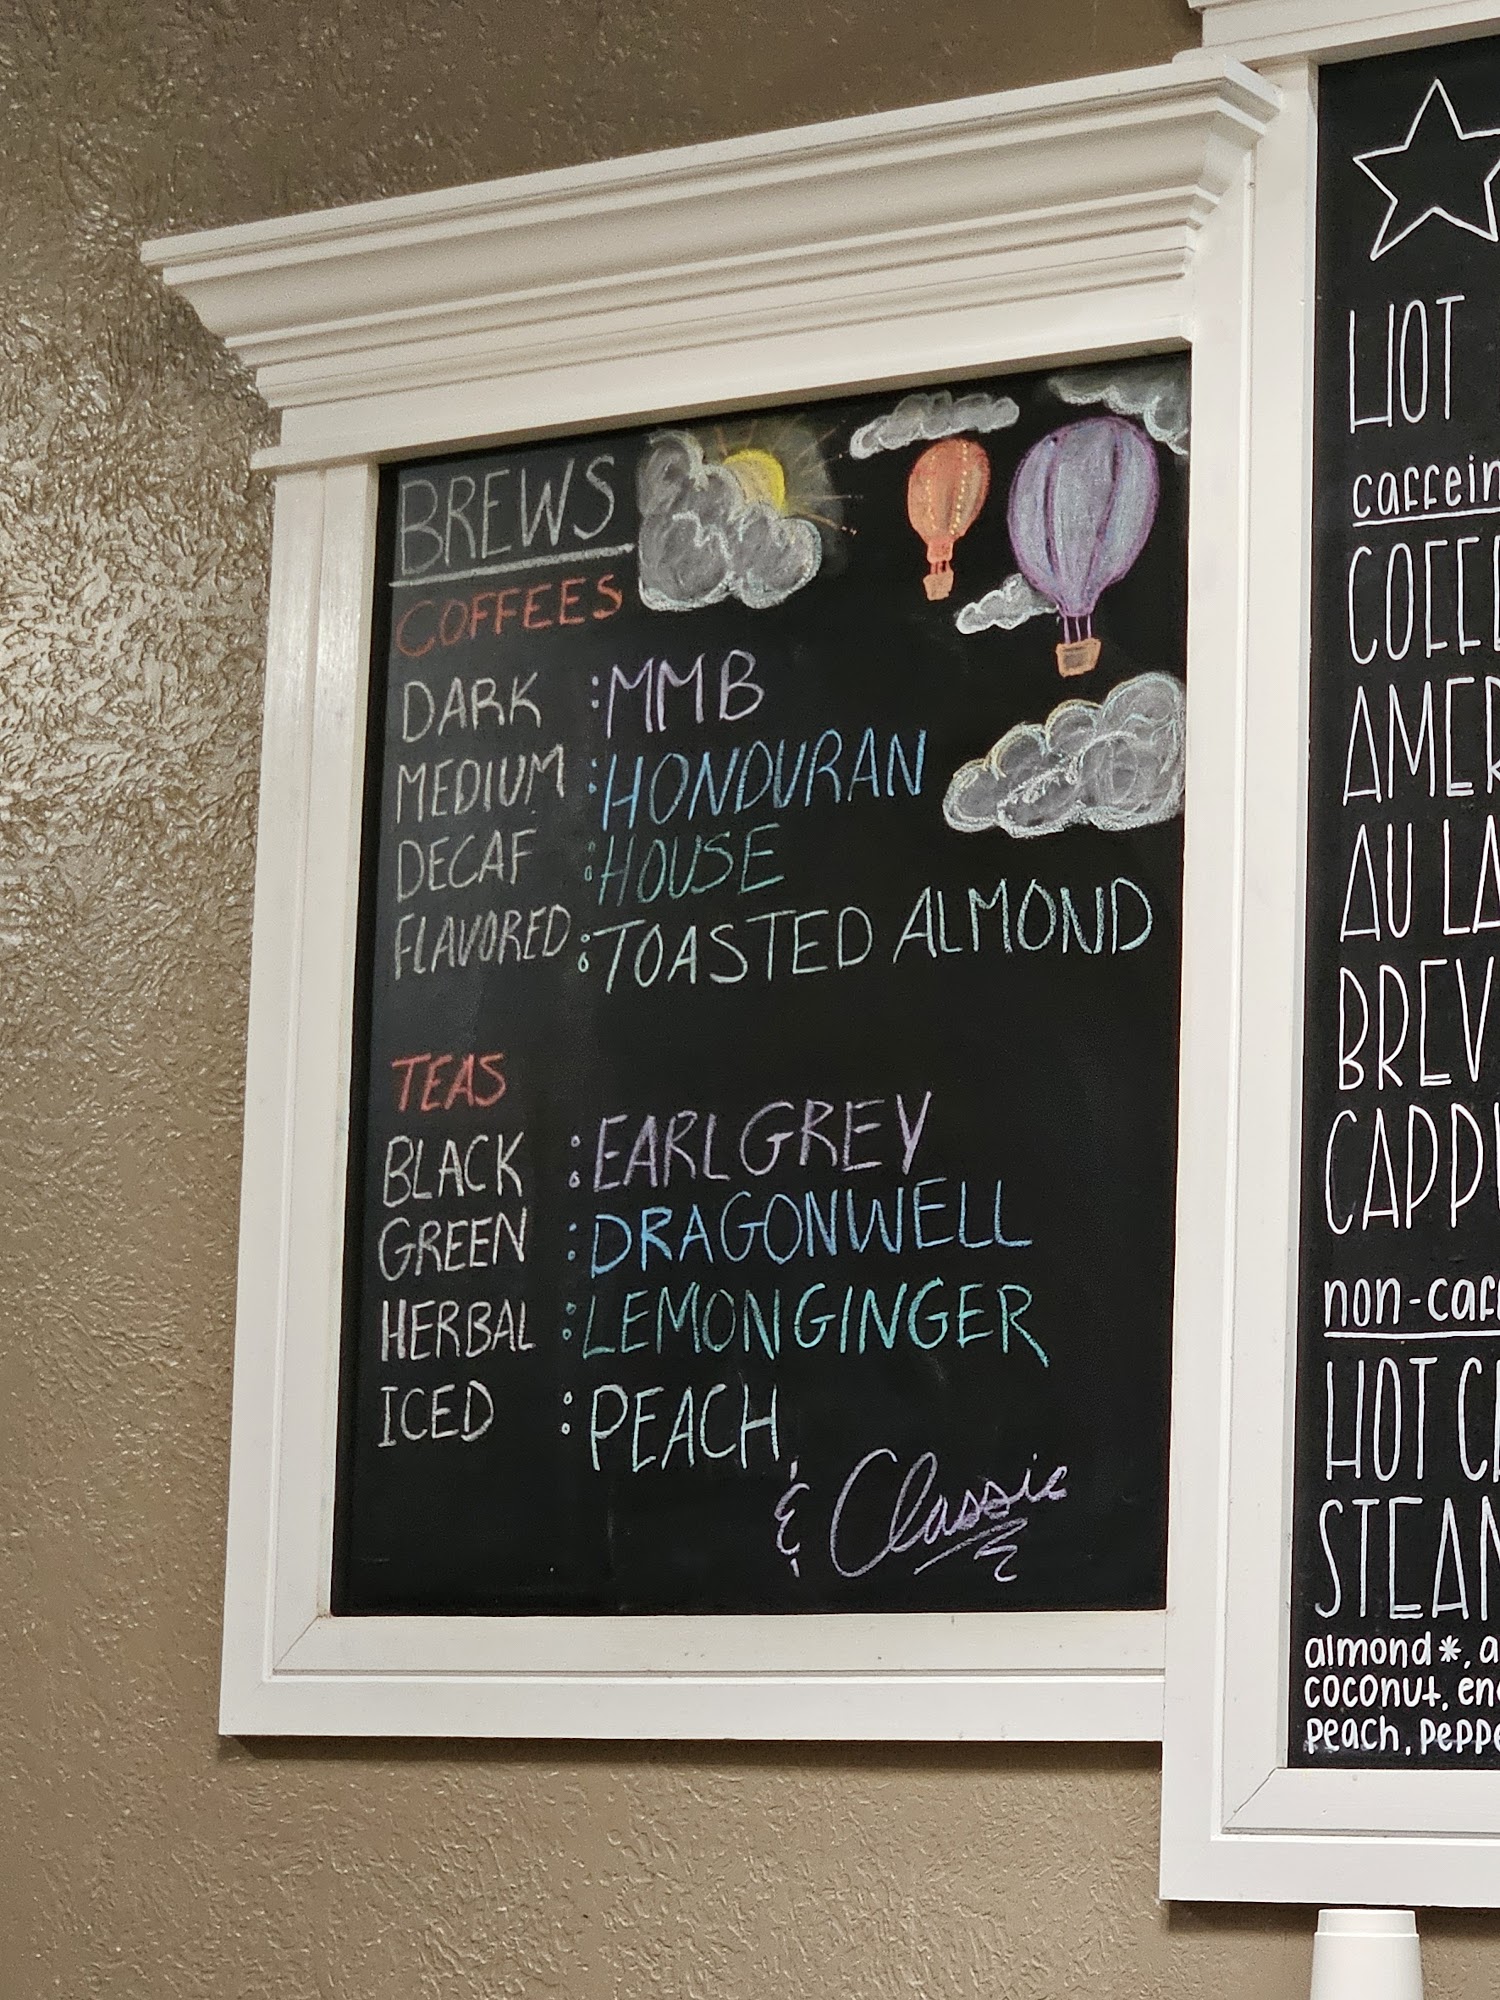 BREWS
COFFEES
DARK : MMB
MEDIUM : HONDURAN
DECAF : HOUSE
FLAVORED : TOASTED ALMOND
TEAS
BLACK : EARL GREY
GREEN : DRAGONWELL
HERBAL : LEMON GINGER
ICED : PEACH
& Classic
HOT
caffein
COFFE
AMER
AU LA
BREV
CAPPU
non-caf
HOT C
STEAM
almond*, a
coconut, en
peach, peppe